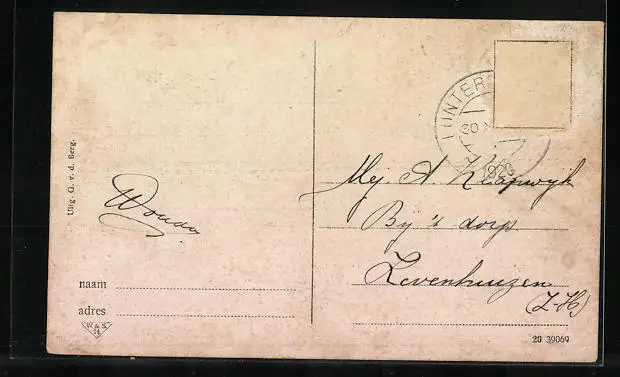 Uitg. G. v. d. Berg.
naam
adres
W & S
H
UNTER
30 X
1928
Mej. A. Knapwijk
By 's dorp
Zevenhuizen
(Z-H)
20 39069